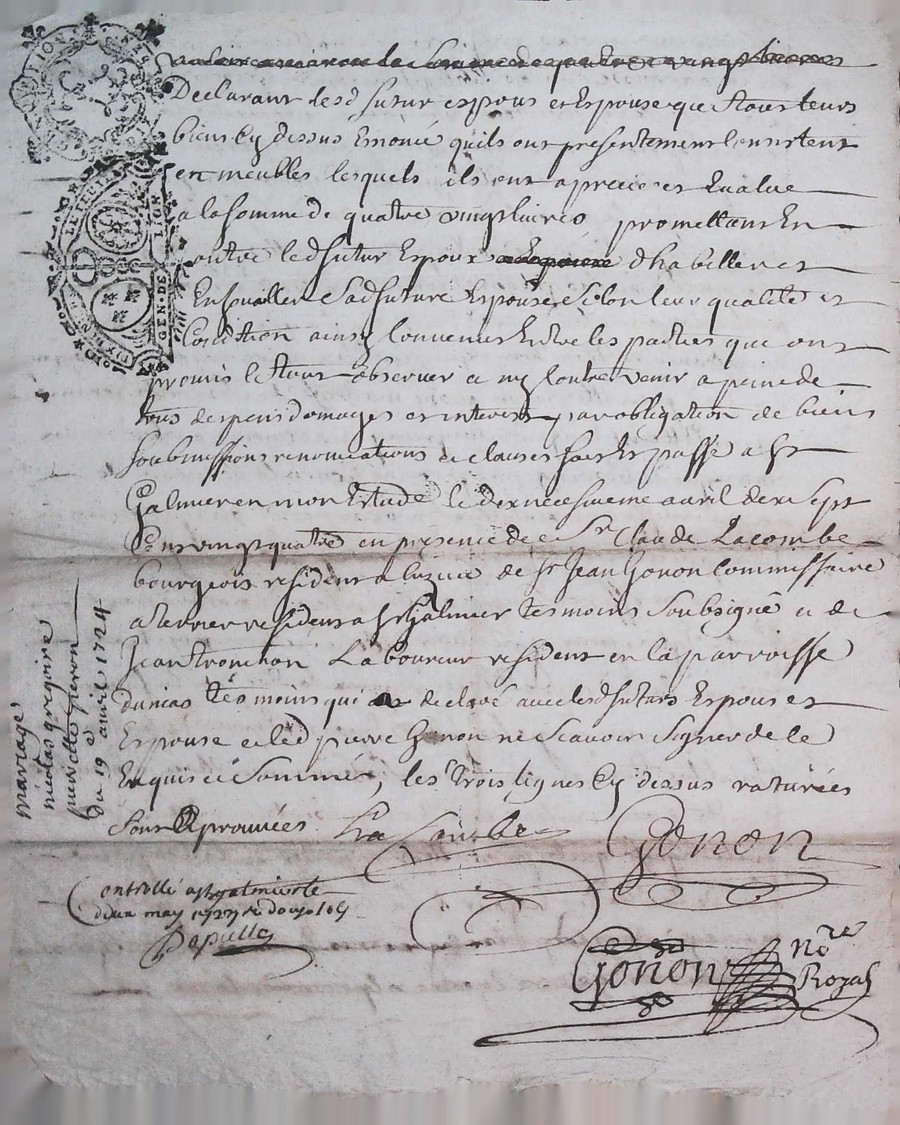 a la somme de quatre vingt livres
Declarant lesd futur espous et Espouse que tous leurs
biens cy dessus Enoncé quils ont presentement Consistent
en meubles lesquels ils ont apreciés et Evalué
a la somme de quatre vingt livres promettans En
outre led futur Espoux dhabiller et
Enjoualler sad future Espouse selon leur qualité et
Condition ainsy Convenus Entre les parties qui ont
promis le tout observer a ny Contrevenir a peine de
tous despens domages et interest par obligation de biens
soubmissions renonciations et clauses fait Et passé a St
Galmier en mon Estude le dernee avril sept
Cens vingt quatre en presence de Sr Claude Lacombe
bourgeois resident a de Sr Jean Gonon Commissaire
a terrier resident a St Galmier tesmoins soubsigné et de
Jean tronchon Laboureur resident en la parroisse
tesmoins qui declaré avec lesd futurs Espous et
Espouse et led pierre Gonon ne scavoir signer de ce
Enquis et sommés, les trois lignes Cy dessus raturées
sont Aprouvées La Combe Gonon
Controllé a St galmier le
deux may 1724
Papillon
Gonon Nore
Royal
mariage
nicolas gregoire
pierrette pieron
du 19e avril 1724
GEN·DE LION